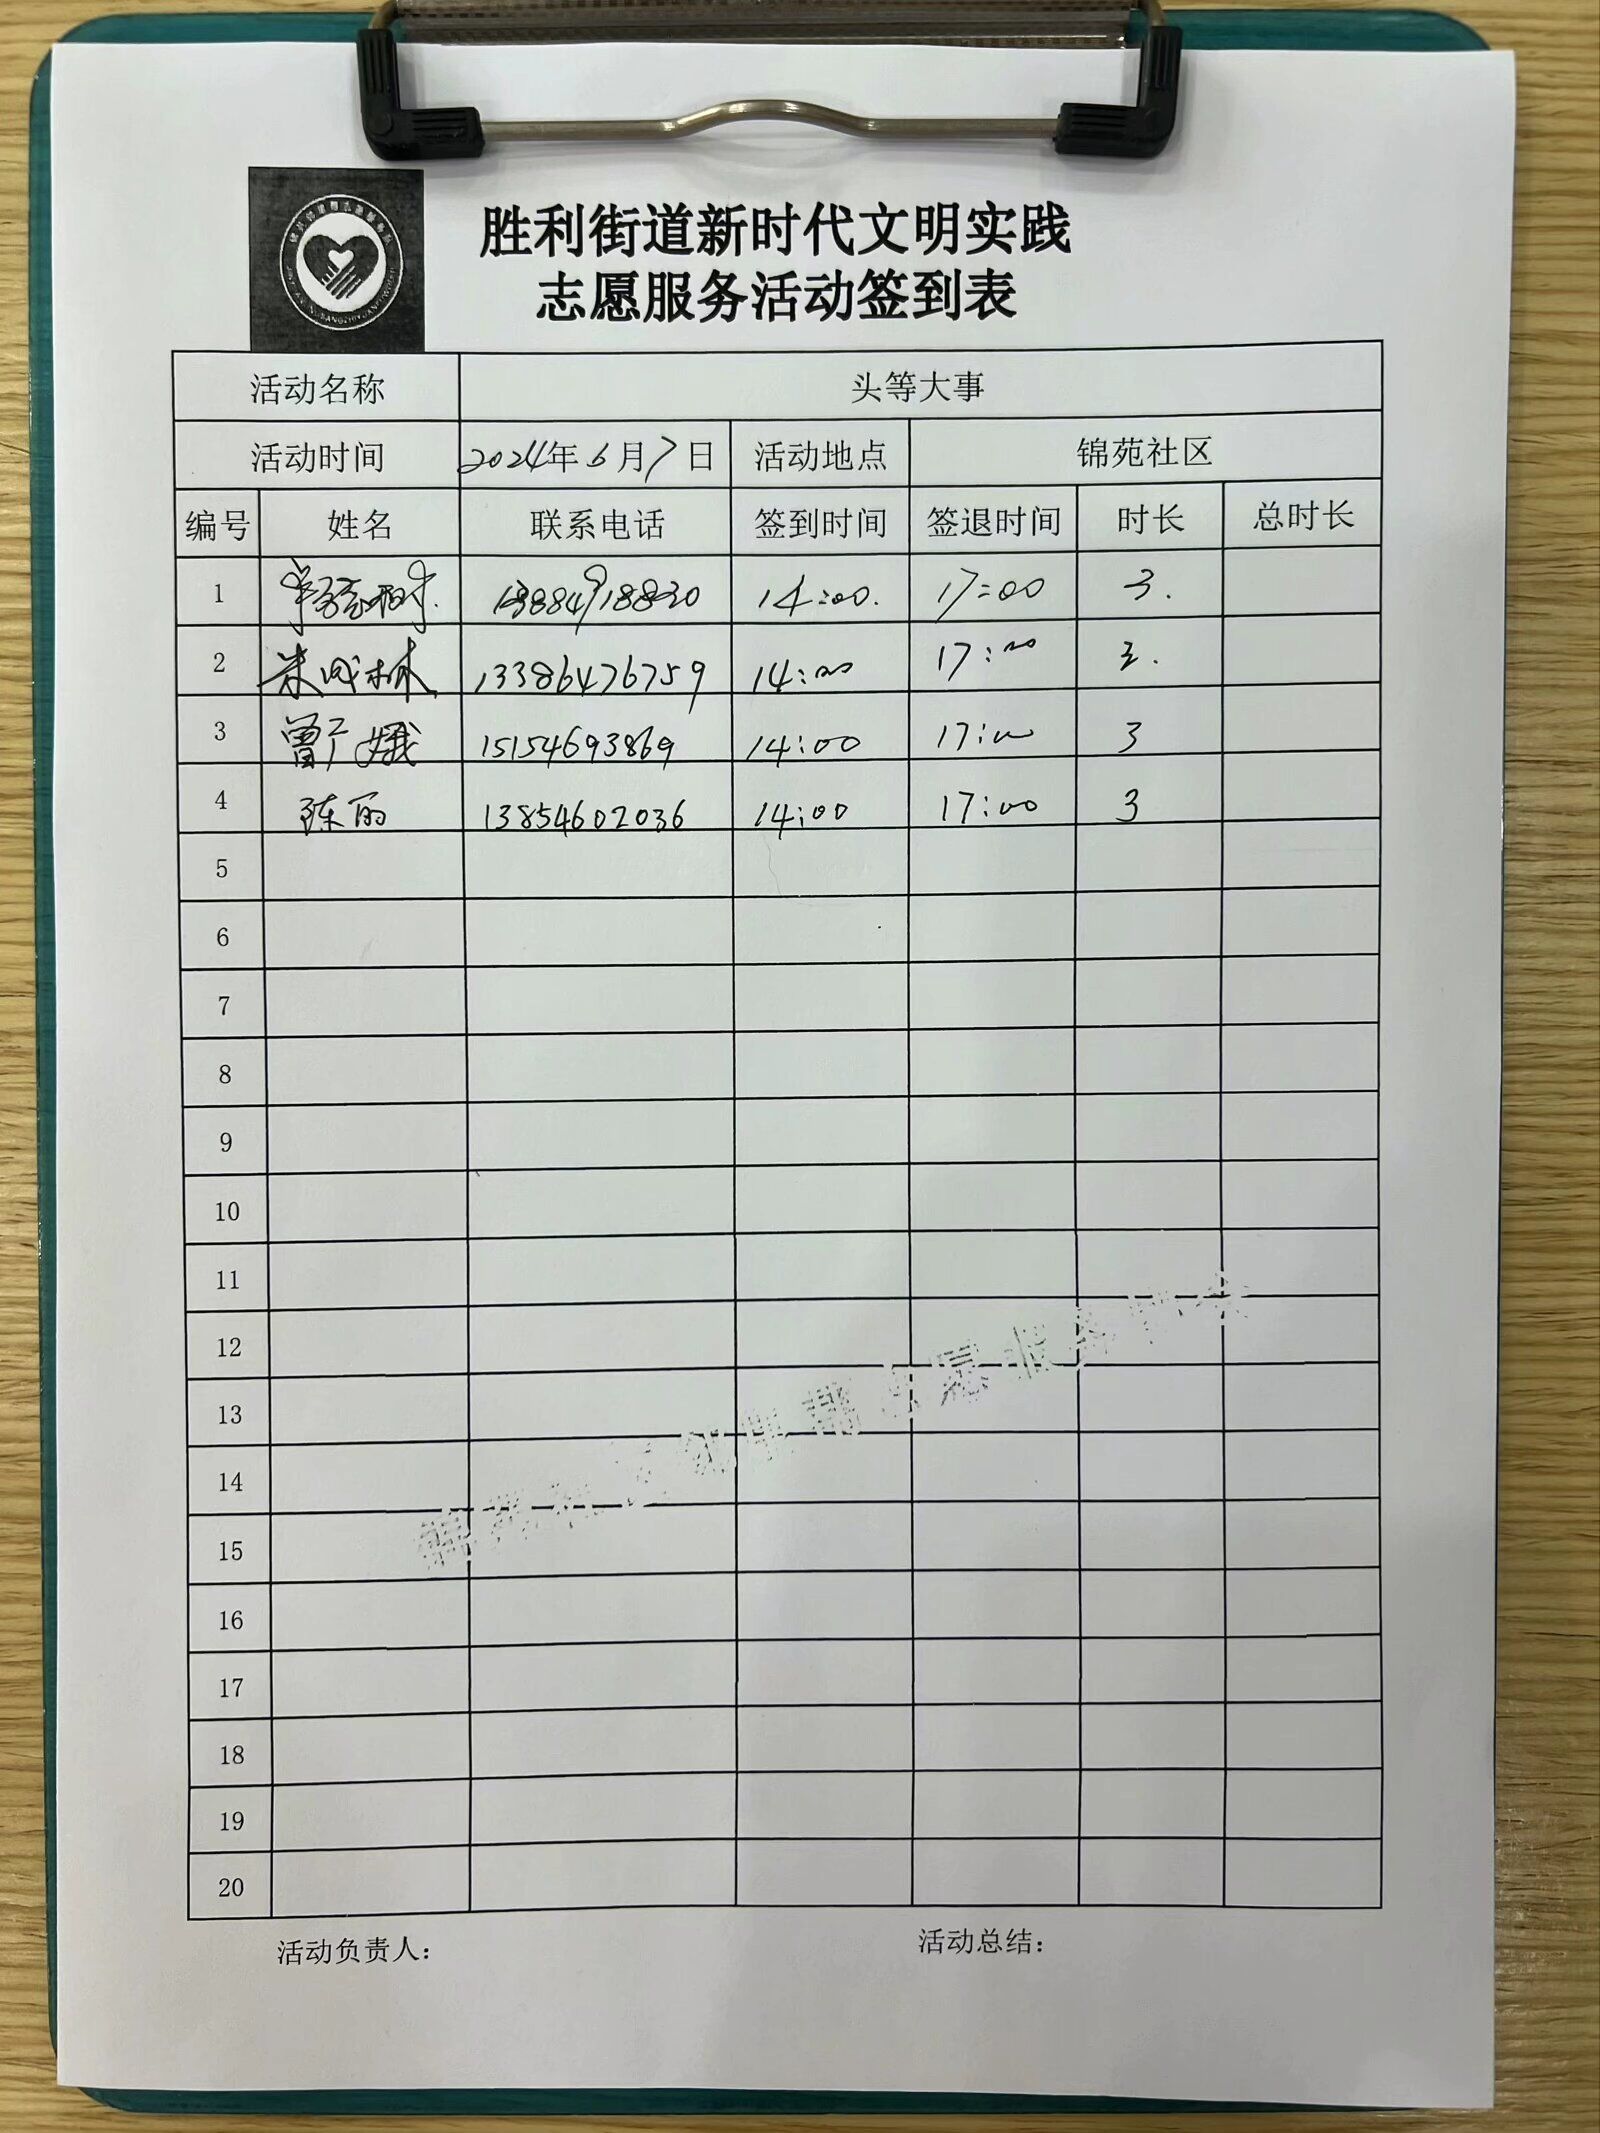 胜利街道新时代文明实践
志愿服务活动签到表
活动名称 头等大事
活动时间 2024年6月7日 活动地点 锦苑社区
编号 姓名 联系电话 签到时间 签退时间 时长 总时长
1 14:00. 17:00 3.
2 朱成林 13386476759 14:00 17:00 3.
3 曾广娥 15154693869 14:00 17:00 3
4 陈丽 13854602036 14:00 17:00 3
5
6
7
8
9
10
11
12
13
14
15
16
17
18
19
20
活动负责人: 活动总结: